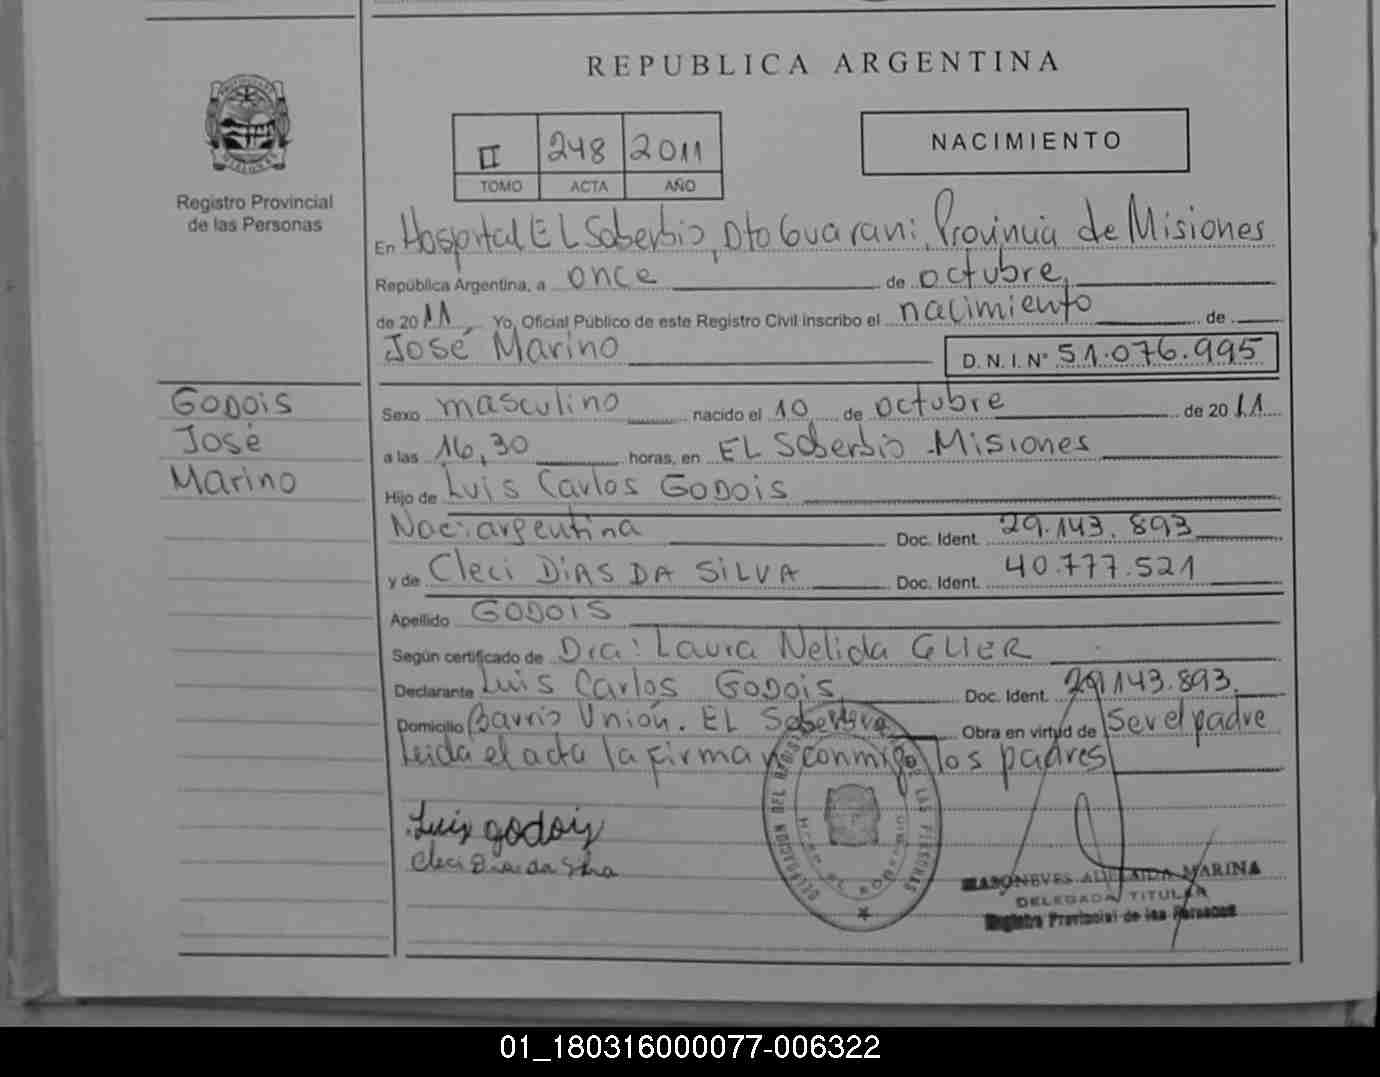 REPUBLICA ARGENTINA
II 248 2011
TOMO ACTA AÑO
NACIMIENTO
Registro Provincial
de las Personas
En Hospital EL Soberbio, Dto Guarani, Provincia de Misiones
República Argentina, a once de octubre,
de 2011 Yo, Oficial Público de este Registro Civil inscribo el nacimiento de
José Marino D.N.I. Nº 51.076.995
GODOIS
José
Marino
Sexo masculino nacido el 10 de octubre de 2011
a las 16,30 horas, en EL Soberbio - Misiones
Hijo de Luis Carlos GODOIS
Nac: argentina Doc. Ident. 29.143.893
y de Cleci DIAS DA SILVA Doc. Ident. 40.777.521
Apellido GODOIS
Según certificado de Dra: Laura Nelida GLIER
Declarante Luis Carlos GODOIS Doc. Ident. 29.143.893
Domicilio Barrio Unión. EL Soberbio Obra en virtud de Ser el padre
Leida el acta la firman conmigo los padres
Luis godois
Cleci Dias da Silva
DELEGACION DEL REGISTRO DE LAS PERSONAS
EL SOBERBIO
MARINA
DELEGADA TITULAR
Registro Provincial de las Personas
01_180316000077-006322